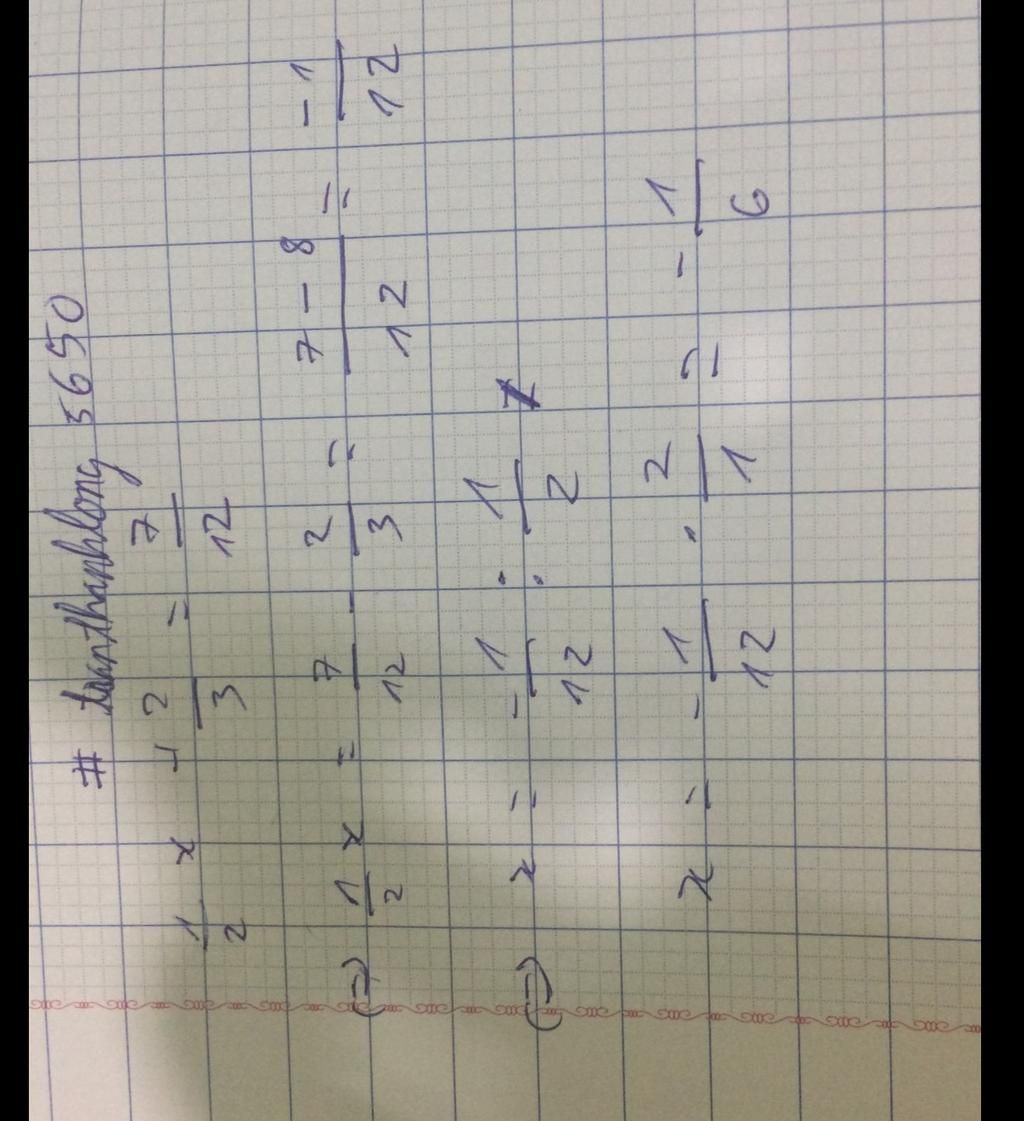 # tranthanhlong 5650
1/2 x + 2/3 = 7/12
⇔ 1/2 x = 7/12 - 2/3 = 7 - 8/12 = -1/12
⇔ x = -1/12 : 1/2
x = -1/12 . 2/1 = -1/6